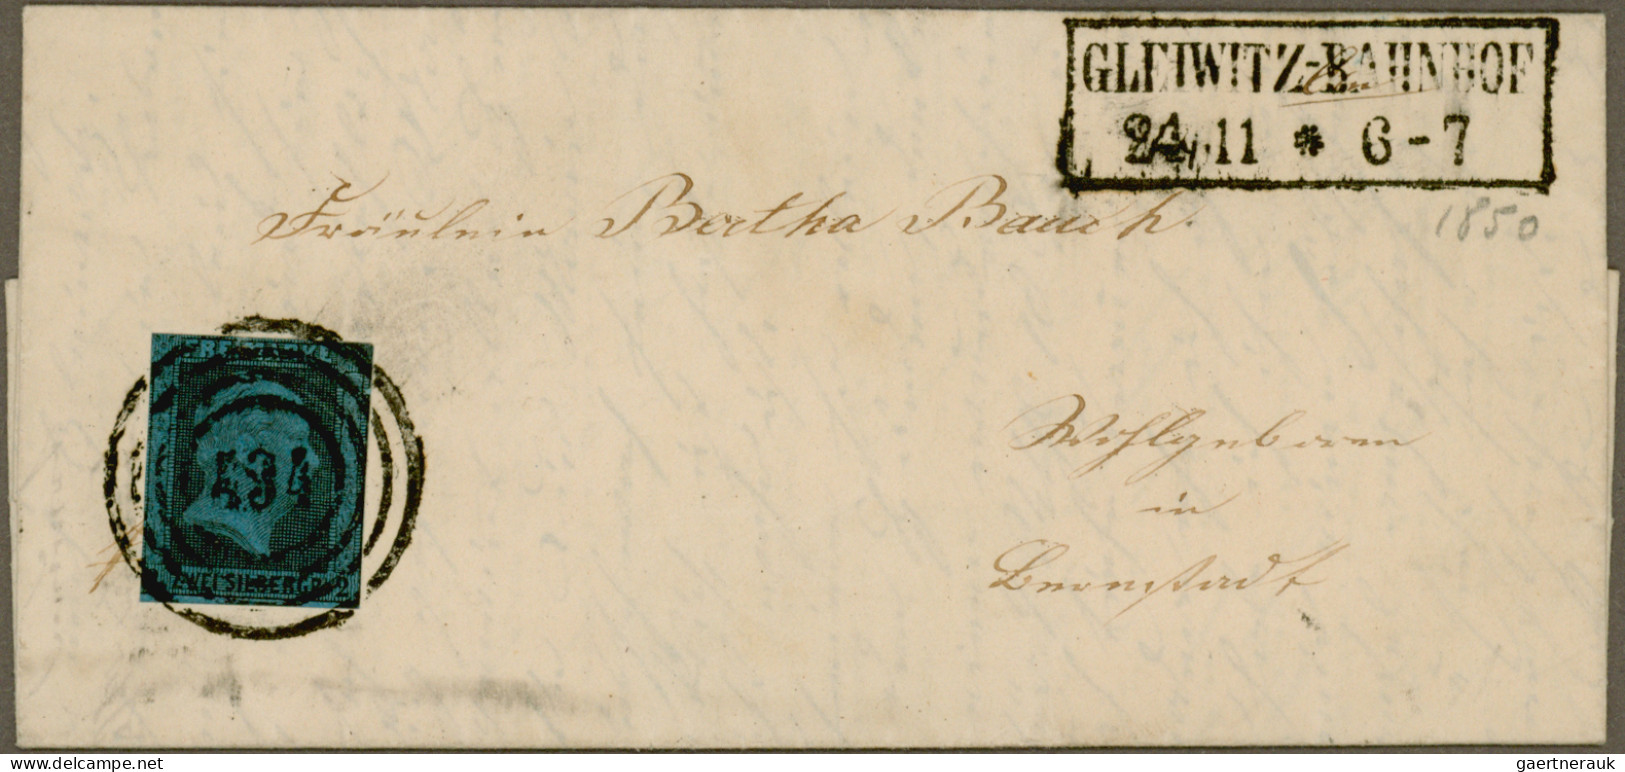 GLEIWITZ-BAHNHOF
24 11 * 6-7
1850
Fräulein Bertha Bauch.
FREIMARKE
434
ZWEI SILBERGR.
Wohlgeboren
in
Bernstadt
gaertnerauk